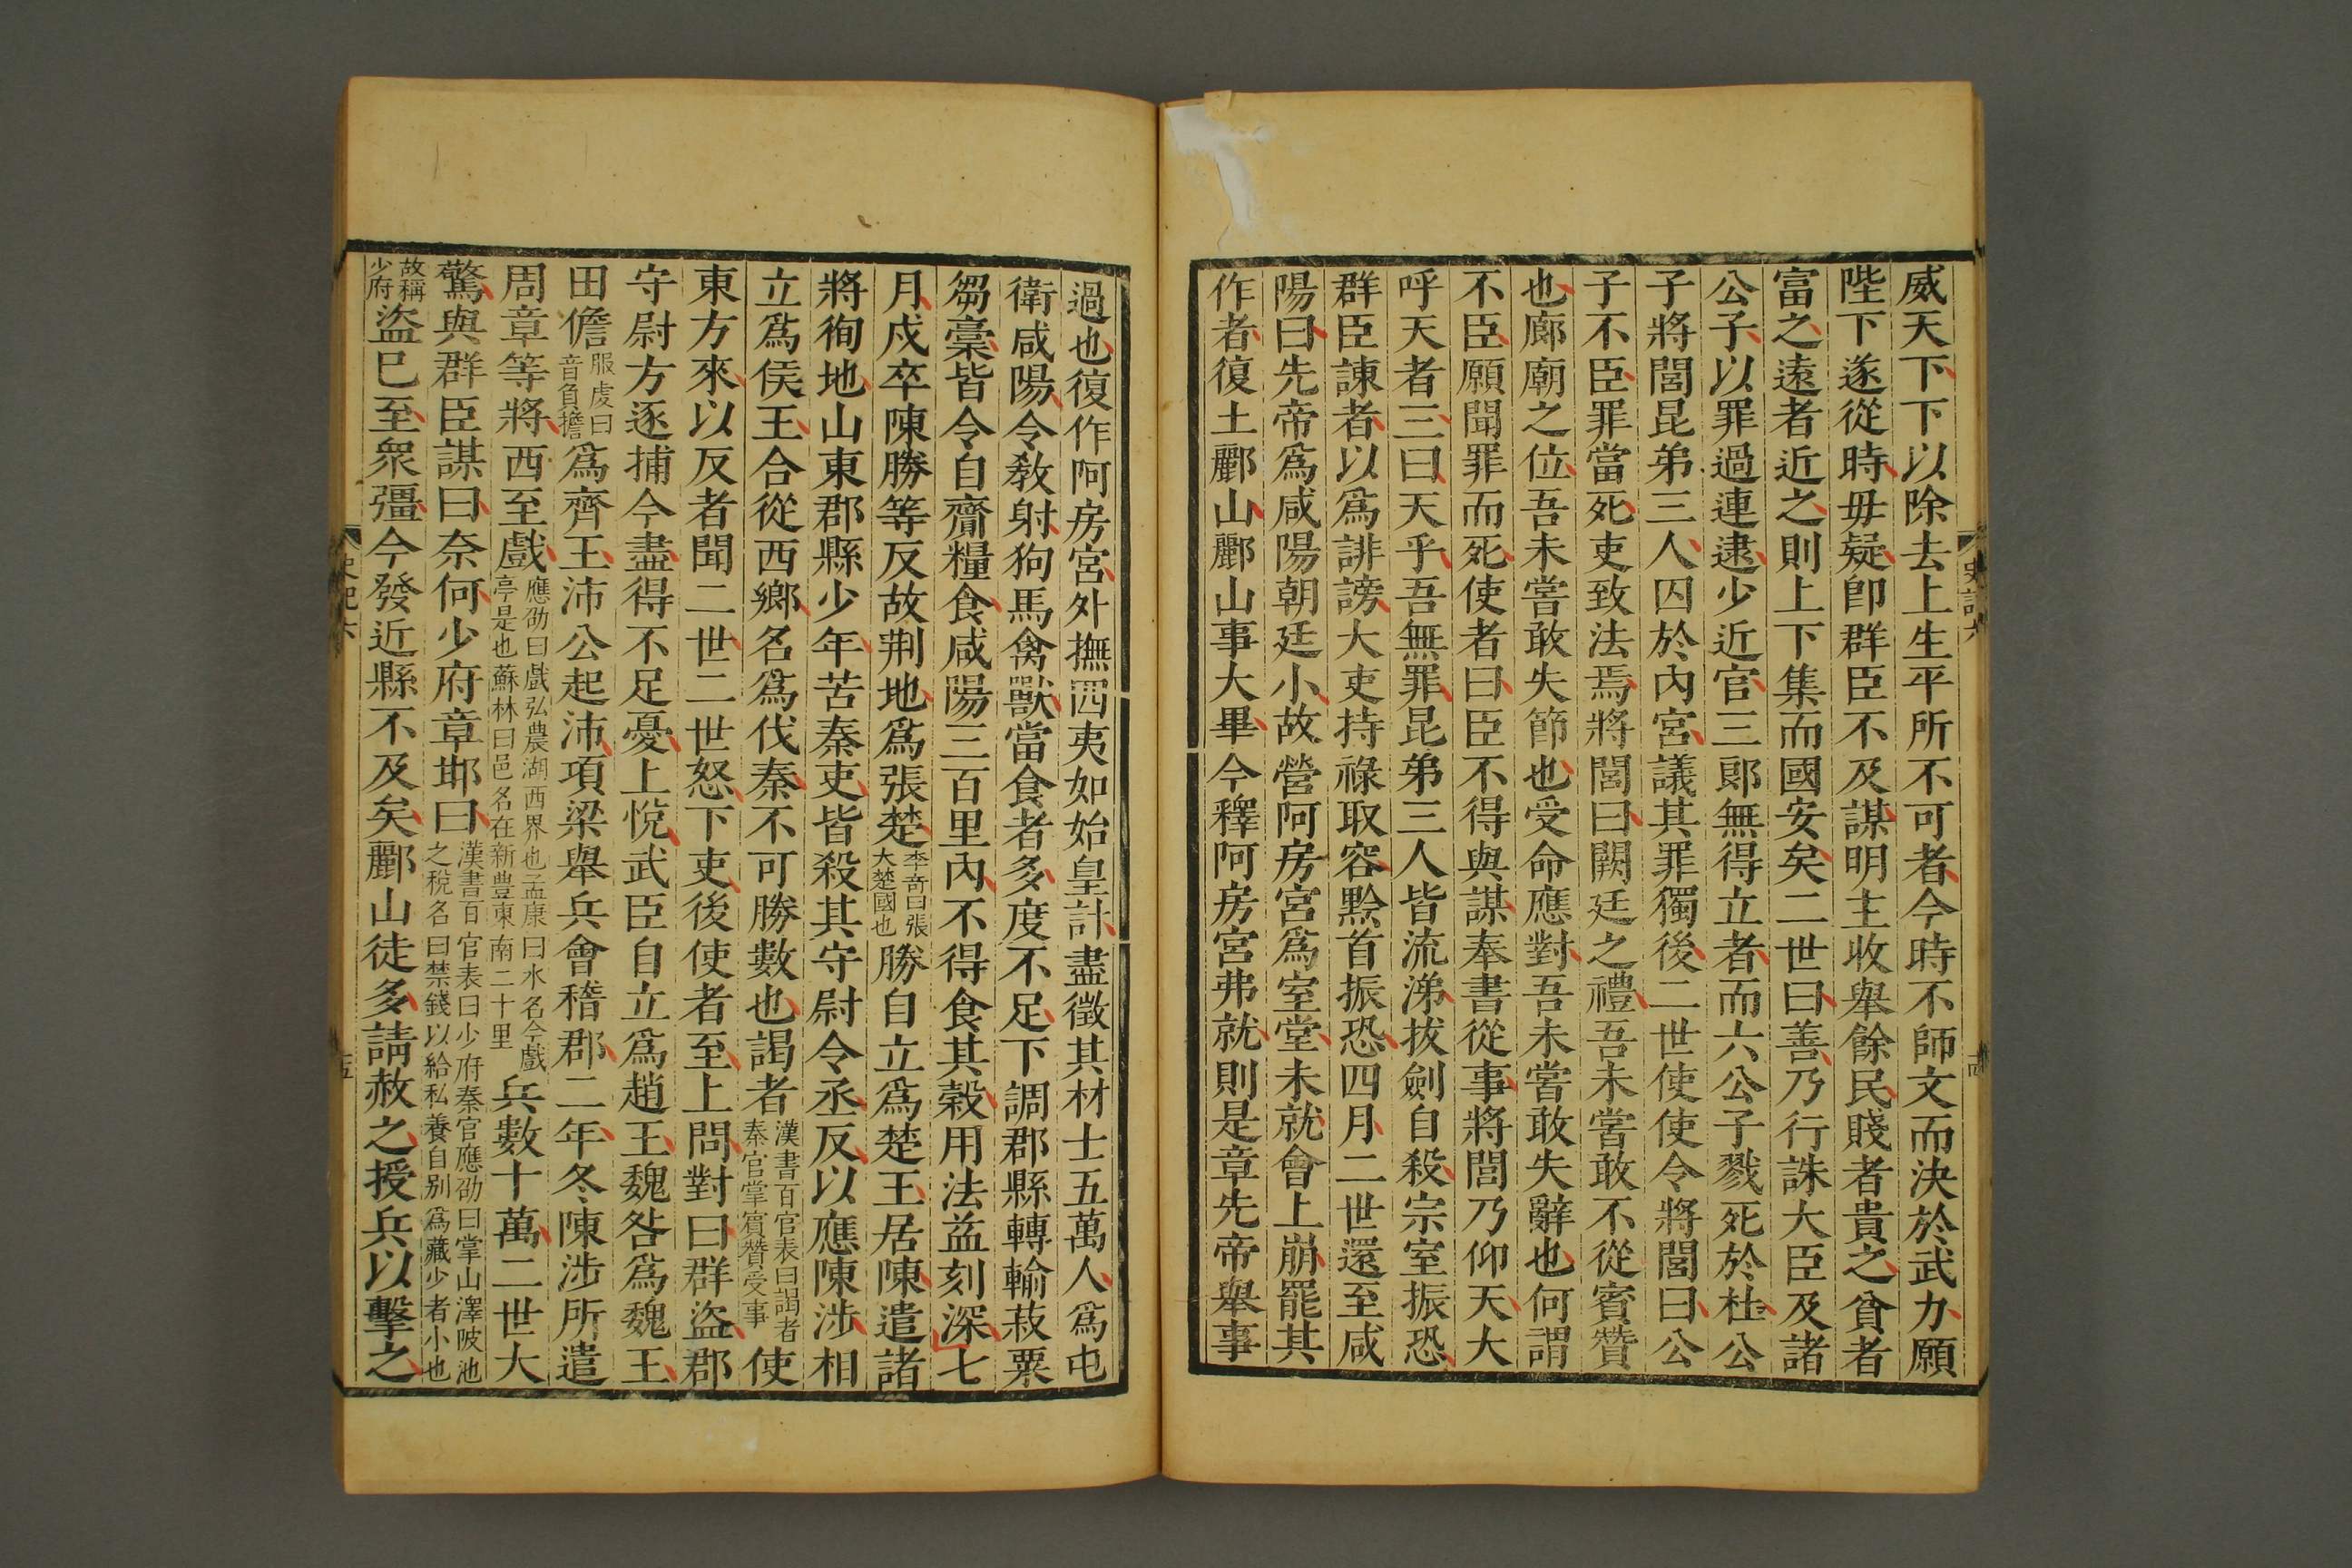 威天下下以除去上生平所不可者今時不師文而決於武力願
陛下遂從時毋疑卽群臣不及謀明主收舉餘民賤者貴之貧者
富之遠者近之則上下集而國安矣二世曰善乃行誅大臣及諸
公子以罪過連逮少近官三郞無得立者而六公子戮死於杜公
子將閭昆弟三人囚於內宮議其罪獨後二世使使令將閭曰公
子不臣罪當死吏致法焉將閭曰闕廷之禮吾未嘗敢不從賓贊
也廊廟之位吾未嘗敢失節也受命應對吾未嘗敢失辭也何謂
不臣願聞罪而死使者曰臣不得與謀奉書從事將閭乃仰天大
呼天者三曰天乎吾無罪昆弟三人皆流涕拔劍自殺宗室振恐
群臣諫者以爲誹謗大吏持祿取容黔首振恐四月二世還至咸
陽曰先帝爲咸陽朝廷小故營阿房宮爲室堂未就會上崩罷其
作者復土酈山酈山事大畢今釋阿房宮弗就則是章先帝舉事
史記六
十四
過也復作阿房宮外撫四夷如始皇計盡徵其材士五萬人爲屯
衛咸陽令敎射狗馬禽獸當食者多度不足下調郡縣轉輸菽粟
芻藁皆令自齎糧食咸陽三百里內不得食其穀用法益刻深七
月戍卒陳勝等反故荆地爲張楚李奇曰張大楚國也勝自立爲楚王居陳遣諸
將徇地山東郡縣少年苦秦吏皆殺其守尉令丞反以應陳涉相
立爲侯王合從西鄉名爲伐秦不可勝數也謁者漢書百官表曰謁者秦官掌賓贊受事使
東方來以反者聞二世二世怒下吏後使者至上問對曰群盜郡
守尉方逐捕今盡得不足憂上悅武臣自立爲趙王魏咎爲魏王
田儋服虔曰音負擔爲齊王沛公起沛項梁舉兵會稽郡二年冬陳涉所遣
周章等將西至戲應劭曰戲弘農湖西界也孟康曰水名今戲亭是也蘇林曰邑名在新豊東南二十里兵數十萬二世大
驚與群臣謀曰奈何少府章邯曰漢書百官表曰少府秦官應劭曰掌山澤陂池之稅名曰禁錢以給私養自别爲藏少者小也
故稱少府盜巳至衆彊今發近縣不及矣酈山徒多請赦之授兵以擊之
史記六
十五